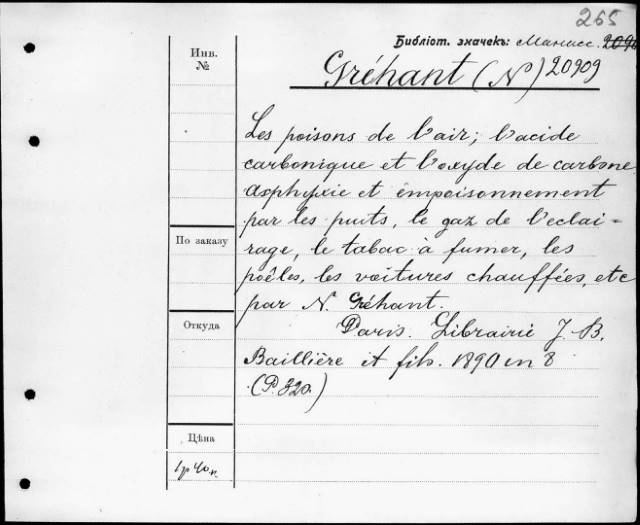 265
Библіот. значекъ: Манасс. 2090
Gréhant (N) 20909
Инв.
№
Les poisons de l'air; l'acide
carbonique et l'oxyde de carbone.
Asphyxie et empoisonnement
par les puits, le gaz de l'eclai-
rage, le tabac à fumer, les
poêles, les voitures chauffées, etc
par N. Gréhant.
Paris. Librairie J. B.
Baillière et fils. 1890 in 8
(P. 320.)
По заказу
Откуда
Цѣна
1 р 40 к.